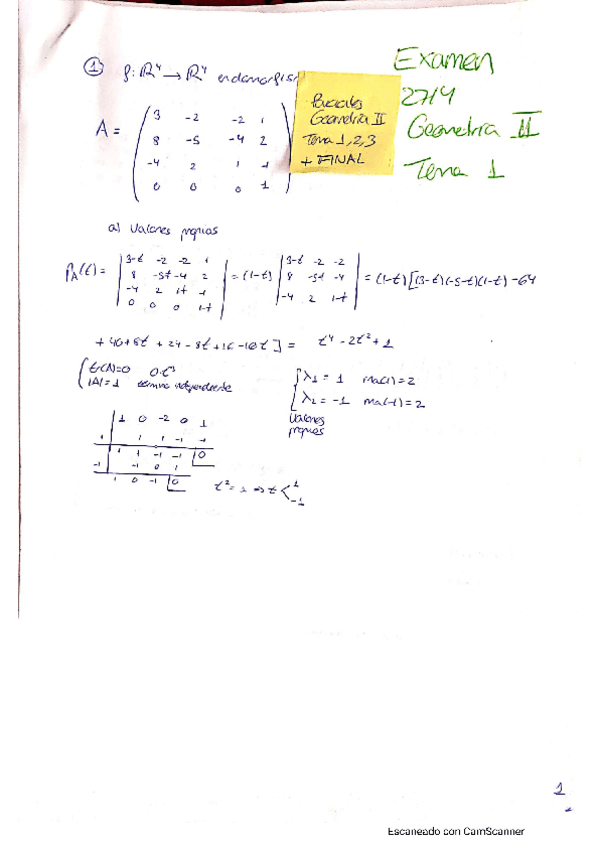 ① f: ℝ⁴ → ℝ⁴ endomorfis
Examen
27/4
Geometria II
Tema 1
Parciales
Geometria II
Tema 1, 2, 3
+ FINAL
A =
3 -2 -2 1
8 -5 -4 2
-4 2 1 -1
0 0 0 1
a) Valores propios
P_A(t) = |3-t -2 -2 1; 8 -5-t -4 2; -4 2 1-t -1; 0 0 0 1-t| = (1-t) |3-t -2 -2; 8 -5-t -4; -4 2 1-t| = (1-t)[(3-t)(-5-t)(1-t) -64
+ 40+8t + 24 - 8t + 16 - 16t] = t⁴ - 2t² + 1
tr(A)=0 0·t³
|A|=1 término independiente
λ₁ = 1 ma(1)=2
λ₂ = -1 ma(-1)=2
Valores
propios
1 0 -2 0 1
1 1 1 -1 -1
1 1 -1 -1 0
-1 -1 0 1
1 0 -1 0
t² = 1 => t < 1
-1
1
Escaneado con CamScanner